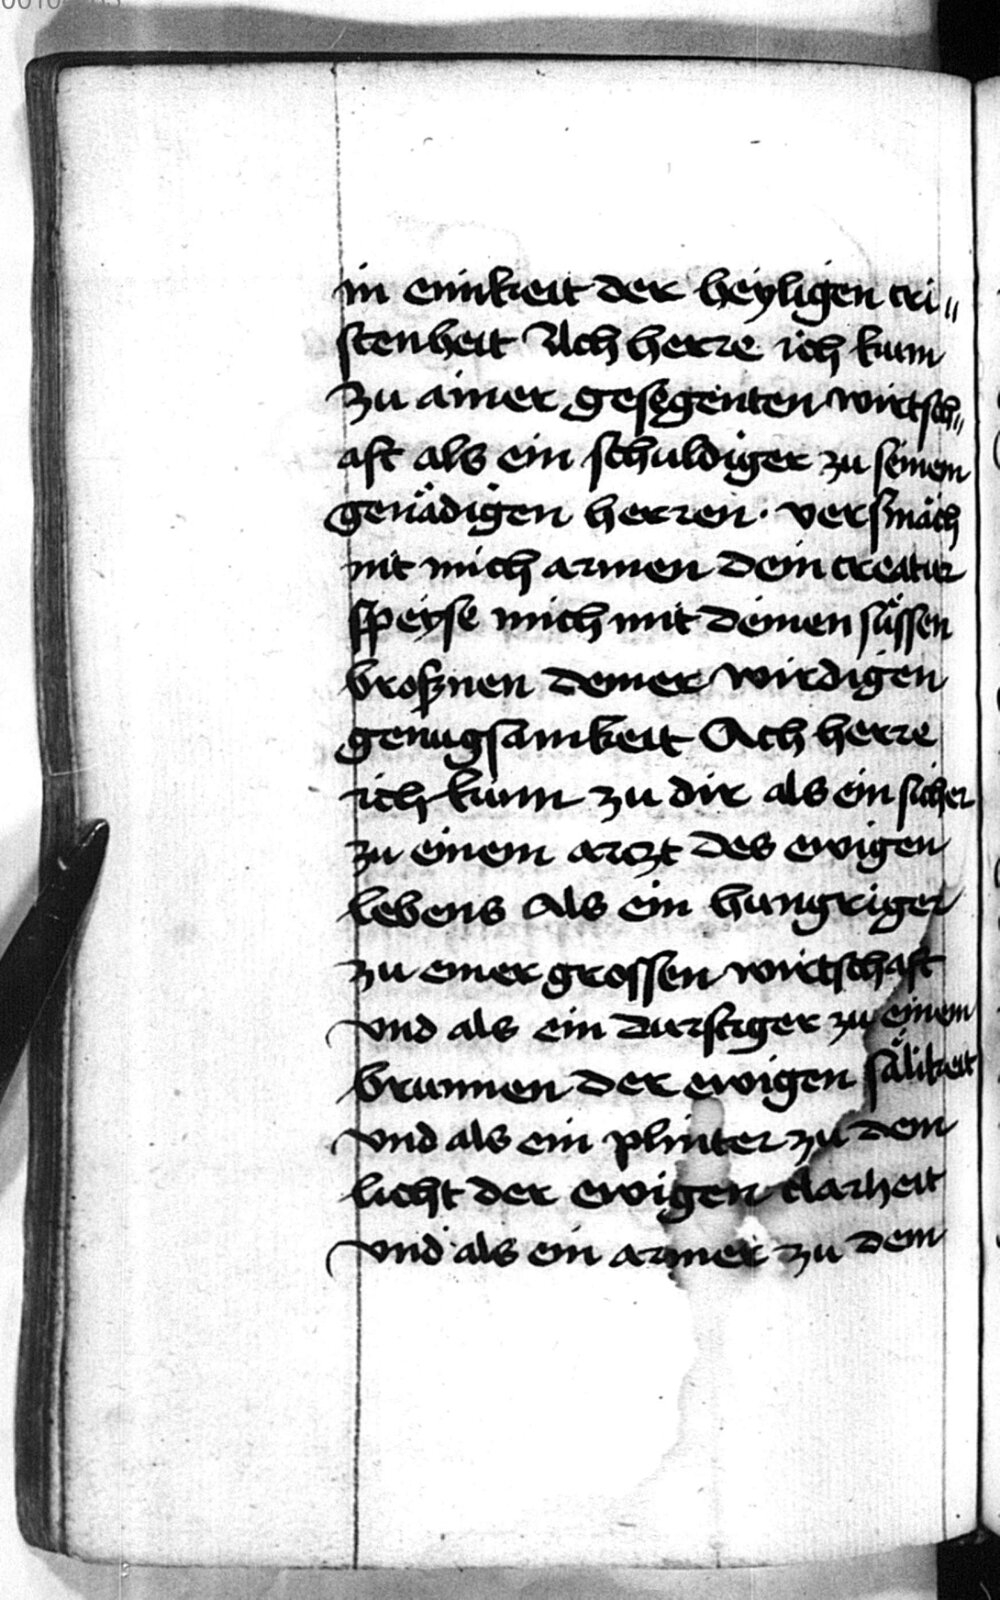 in einikeit der heyligen cri„
stenheit Ach herre ich kum
zu ainer gesegenten wirtsch„
aft als ein schuldiger zu seinem
genädigen herren · versmäch
nit mich armen dein creatur
speyse mich mit deinen süssen
broßnen deiner wirdigen
genugsamkeit Ach herre
ich kum zu dir als ein sicher
zu einem arczt des ewigen
lebens Als ein hungriger
zu einer grossen wirtschaft
vnd als ein durstiger zu einem
brunnen der ewigen sälikeit
vnd als ein plinter zu dem
licht der ewigen clarheit
vnd als ein armer zu dem